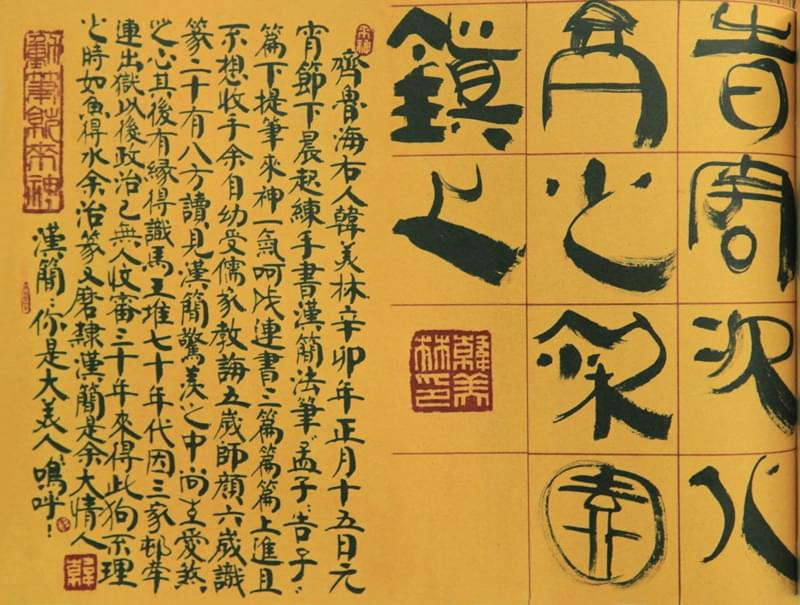 昔周次
之
鎮
韓美林印
齊魯海右人韓美林辛卯年正月十五日元
宵節下晨起練手書漢簡法筆孟子:告子:
篇下提筆來神一氣呵成連書二篇篇篇上進且
不想收手余自幼受儒家教誨五歲師顏六歲識
篆二十有八方讀見漢簡驚羨之中尚生愛煞
之心其後有緣得識馬王堆七十年代因三家邨牽
連出獄以後政治已無人收審三十年來得此狗不理
之時如魚得水余治篆又磨隸漢簡是余大情人
漢簡:你是大美人嗚呼!
韓